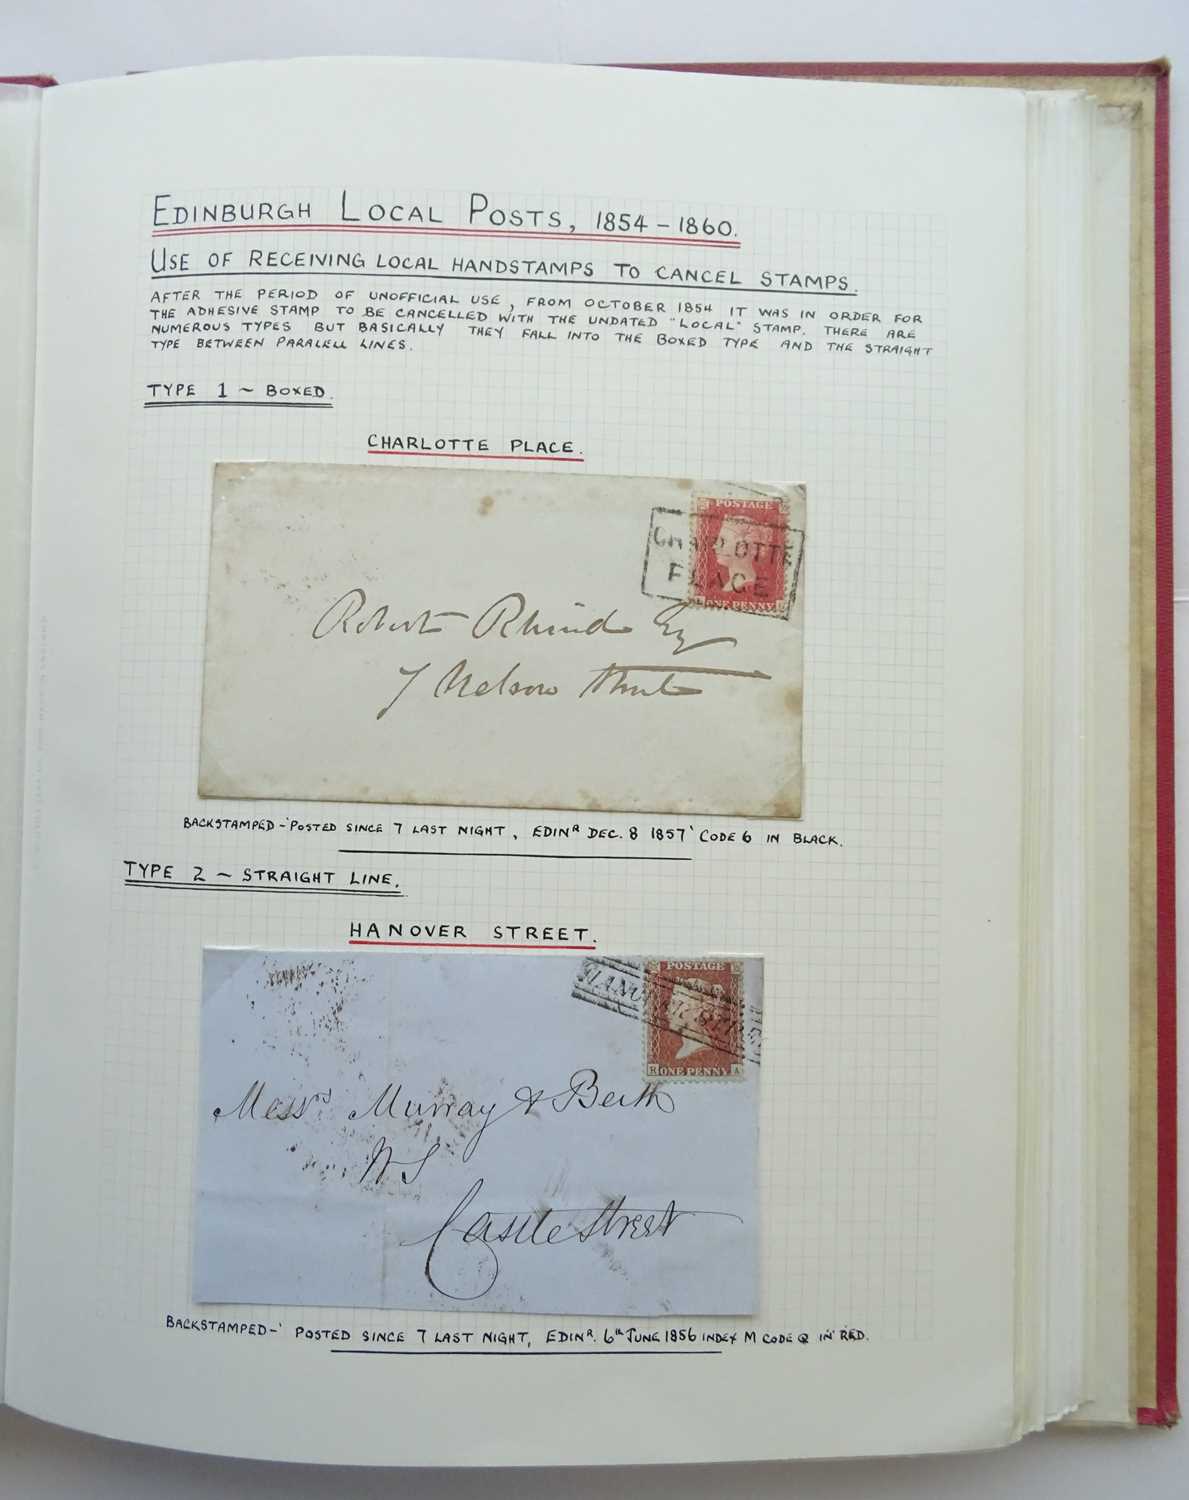 EDINBURGH LOCAL POSTS, 1854-1860.
USE OF RECEIVING LOCAL HANDSTAMPS TO CANCEL STAMPS.
AFTER THE PERIOD OF UNOFFICIAL USE, FROM OCTOBER 1854 IT WAS IN ORDER FOR
THE ADHESIVE STAMP TO BE CANCELLED WITH THE UNDATED "LOCAL" STAMP. THERE ARE
NUMEROUS TYPES BUT BASICALLY THEY FALL INTO THE BOXED TYPE AND THE STRAIGHT
TYPE BETWEEN PARALELL LINES.
TYPE 1 ~ BOXED.
CHARLOTTE PLACE.
POSTAGE
CHARLOTTE
PLACE
ONE PENNY
Robert Rhind Esq
7 Nelson Street
BACKSTAMPED-'POSTED SINCE 7 LAST NIGHT, EDINR DEC. 8 1857' CODE 6 IN BLACK.
TYPE 2 ~ STRAIGHT LINE.
HANOVER STREET.
POSTAGE
HANOVER STREET
R ONE PENNY A
Messrs Murray & Beith
WS
Castle Street
BACKSTAMPED-' POSTED SINCE 7 LAST NIGHT, EDINR. 6th JUNE 1856 INDEX M CODE Q IN RED.